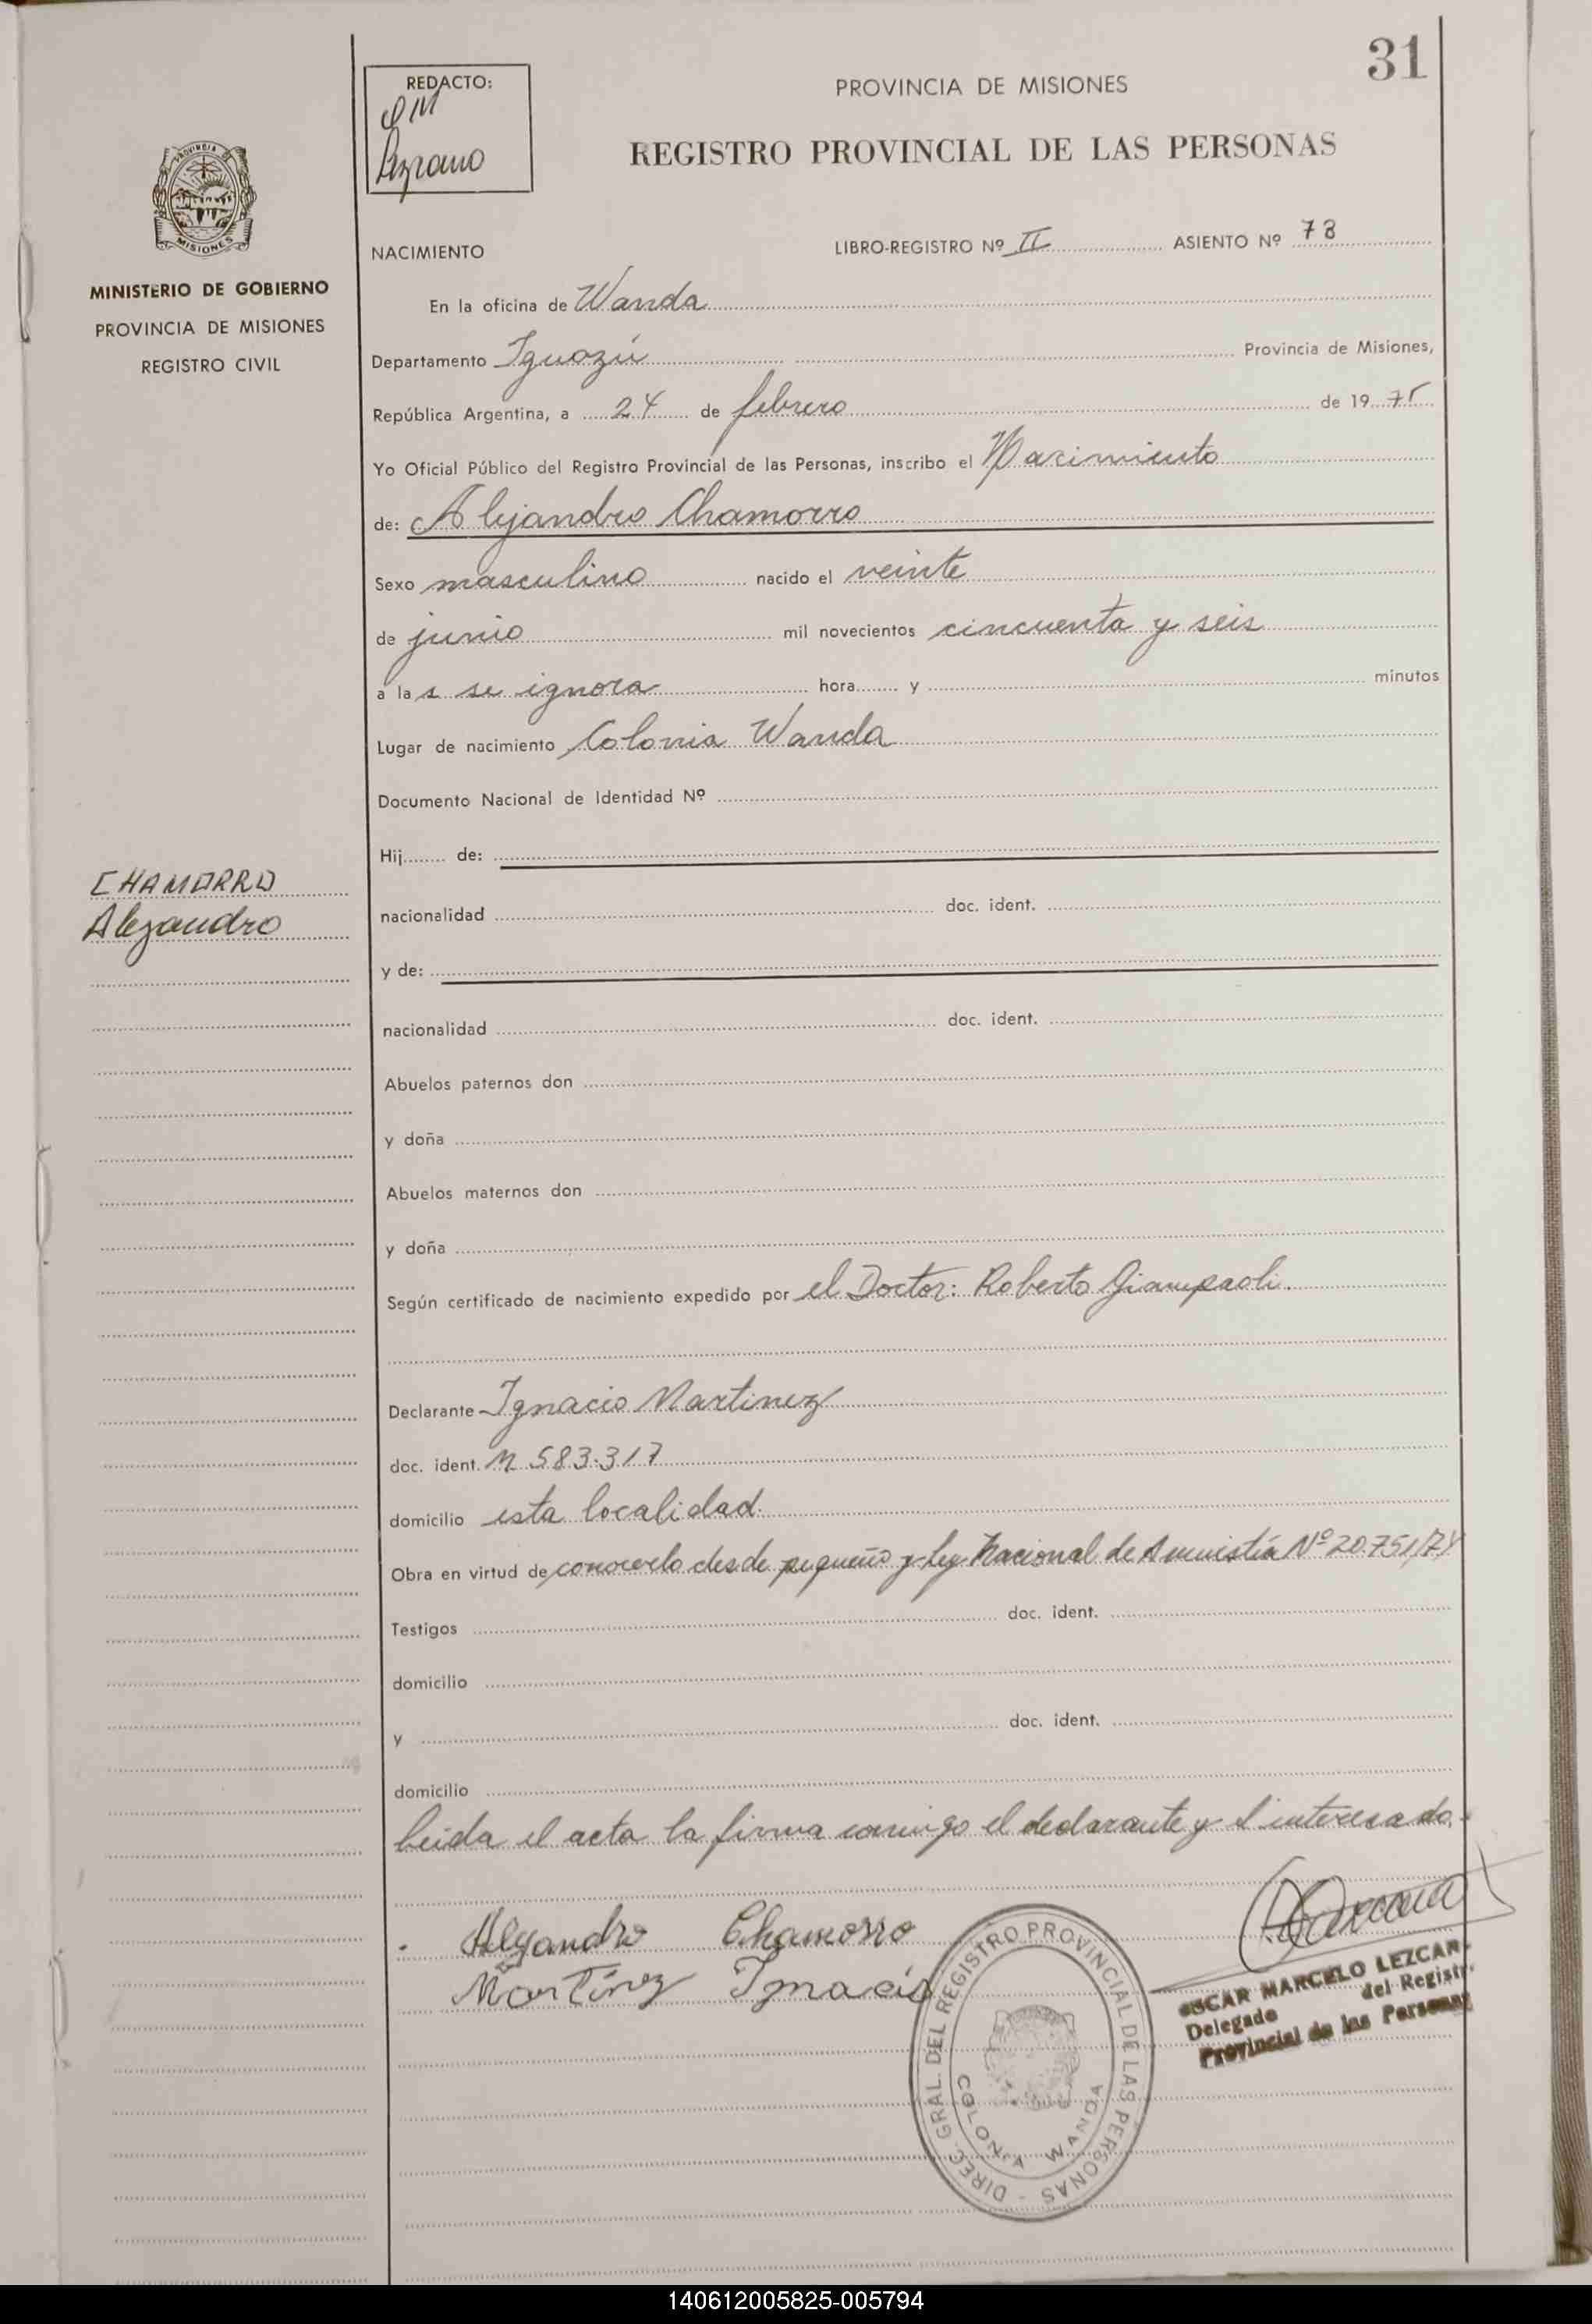 31
REDACTO:
PROVINCIA DE MISIONES
REGISTRO PROVINCIAL DE LAS PERSONAS
MISIONES
MINISTERIO DE GOBIERNO
PROVINCIA DE MISIONES
REGISTRO CIVIL
NACIMIENTO LIBRO-REGISTRO Nº II ASIENTO Nº 78
En la oficina de Wanda
Departamento Iguazú Provincia de Misiones,
República Argentina, a 24 de febrero de 19 75
Yo Oficial Público del Registro Provincial de las Personas, inscribo el Nacimiento
de: Alejandro Chamorro
Sexo masculino nacido el veinte
de junio mil novecientos cincuenta y seis
a la s se ignora hora y minutos
Lugar de nacimiento Colonia Wanda
Documento Nacional de Identidad Nº
Hij de:
CHAMORRO
Alejandro
nacionalidad doc. ident.
y de:
nacionalidad doc. ident.
Abuelos paternos don
y doña
Abuelos maternos don
y doña
Según certificado de nacimiento expedido por el Doctor: Roberto Giampaoli.
Declarante Ignacio Martinez
doc. ident. M 583.317
domicilio esta localidad.
Obra en virtud de conocerlo desde pequeño y Ley Nacional de Amnistía Nº 20.751/74
Testigos doc. ident.
domicilio
y doc. ident.
domicilio
Leida el acta la firma conmigo el declarante y el interesado.
Alejandro Chamorro
Martínez Ignacio
OSCAR MARCELO LEZCAN
Delegado del Registr.
Provincial de las Personas
DIREC. GRAL. DEL REGISTRO PROVINCIAL DE LAS PERSONAS -
COLONIA WANDA
140612005825-005794